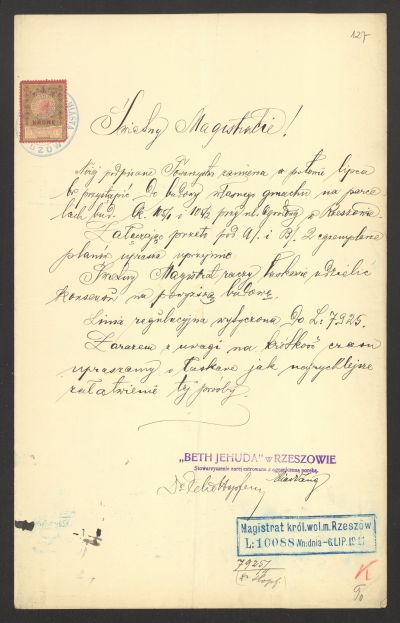 127
KORONE
MIASTA
Świetny Magistracie!
Niżej podpisane Towarzystwo zamierza z połową lipca
br przystąpić do budowy własnego gmachu na parce
lach bud. i przy ul. w Rzeszowie
Załączając przeto pod A/. i B/. 2 egzemplarze
planów uprasza uprzejmie
Świetny Magistrat raczy łaskawie udzielić
konsensu na powyższą budowę.
Linia regulacyjna wytyczona do L: 7925.
Zarazem z uwagi na krótkość czasu
upraszamy o łaskawe jak najrychlejsze
załatwienie tej prośby.
„BETH JEHUDA" w RZESZOWIE
Stowarzyszenie zarejestrowane z ograniczoną poręką.
Magistrat król. wol. m. Rzeszów
L: 10088 Wn: dnia -6. LIP. 19
7925/